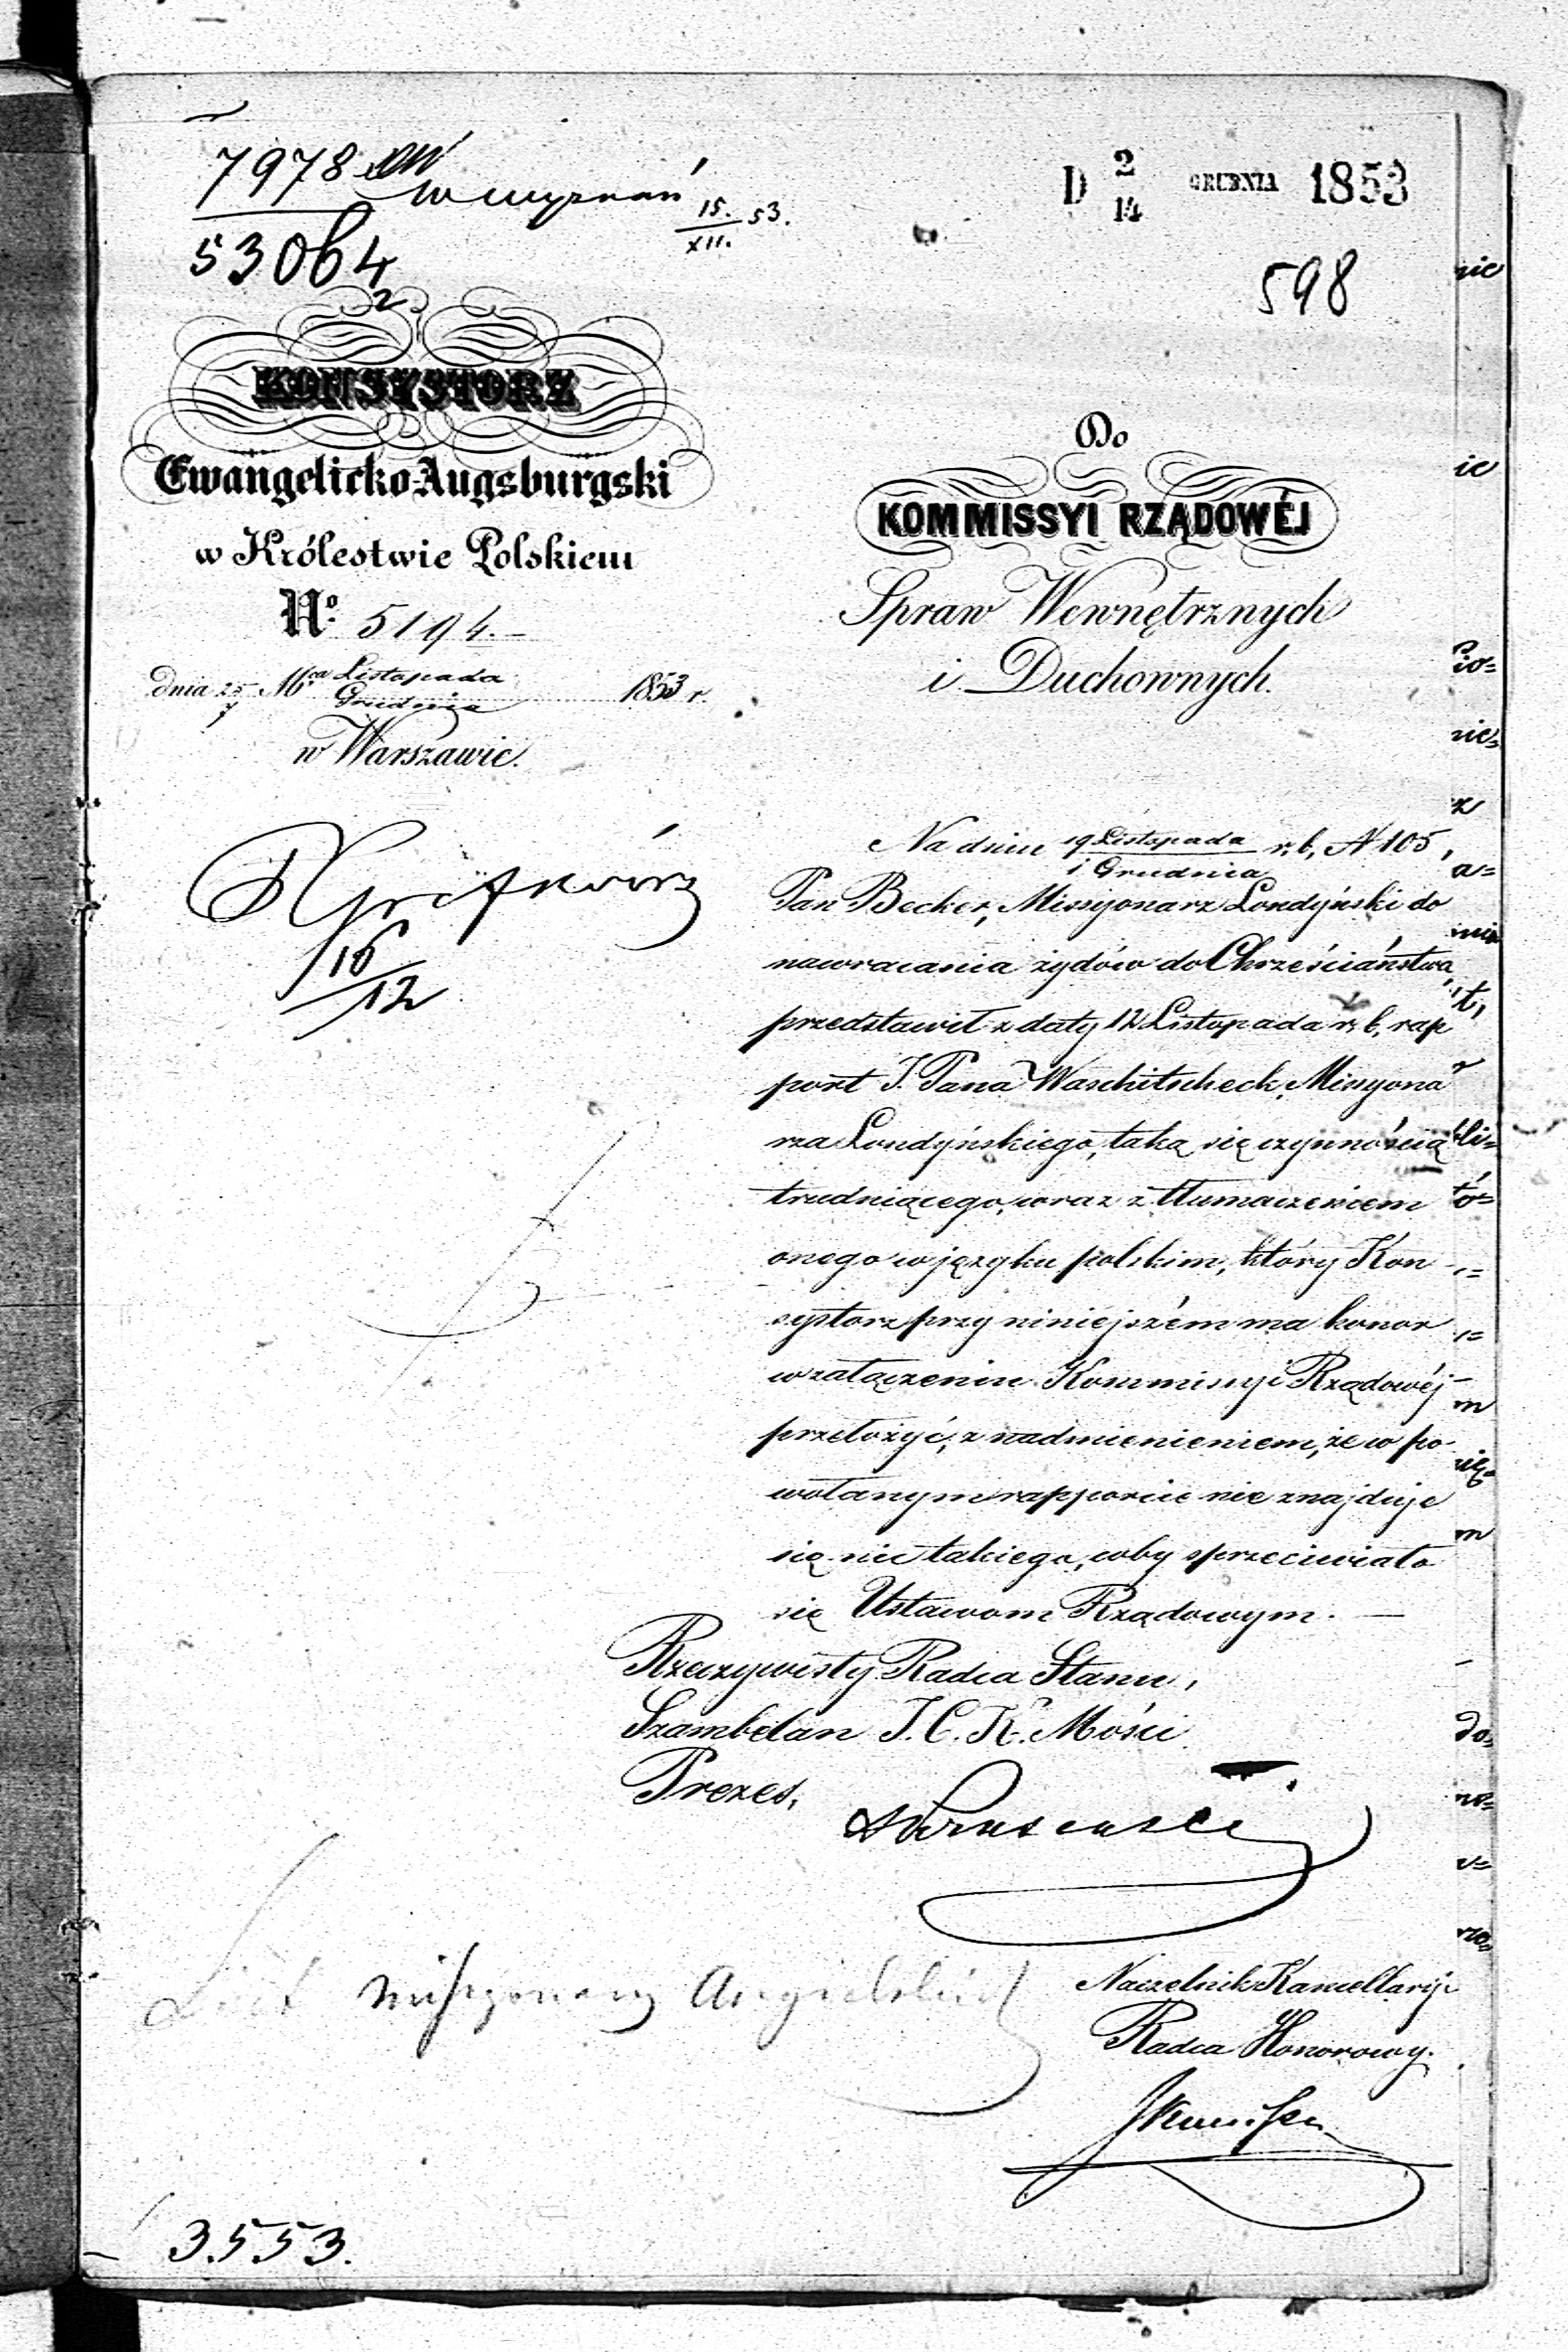 7978
w wyznań 15./XII. 53.
53064
2
D 2/14 GRUDNIA 1853
598
KONSYSTORZ
Ewangelicko-Augsburgski
w Królestwie Polskiem
No. 5194.-
dnia 25/7 Mca Listopada/Grudnia 1853 r.
w Warszawie.
Do
KOMMISSYI RZĄDOWÉJ
Spraw Wewnętrznych
i Duchownych.
16/12
Na dniu 19 Listopada/1 Grudnia r. b, N 105,
Pan Becker, Missyonarz Londyński do
nawracania żydów do Chrześciaństwa
przedstawił z daty 12 Listopada r. b, rap
port J. Pana Waschitscheck, Missyona
rza Londyńskiego, taką się czynnością
trudniącego, wraz z tłumaczeniem
onego w języku polskim, który Kon
systorz przy niniejszém ma honor
w załączeniu Kommissyi Rządowéj
przełożyć, z nadmienieniem, że w po
wołanym rapporcie nie znajduje
się nic takiego, coby sprzeciwiało
się Ustawom Rządowym. —
Rzeczywisty Radca Stanu,
Szambelan J. C. K. Mości
Prezes,
Naczelnik Kancellaryi
Radca Honorowy.
missyonarzy Angielskich
3553.
nie
ic
io=
nie=
z
a=
t,
li=
tó=
m
m
do=
no=